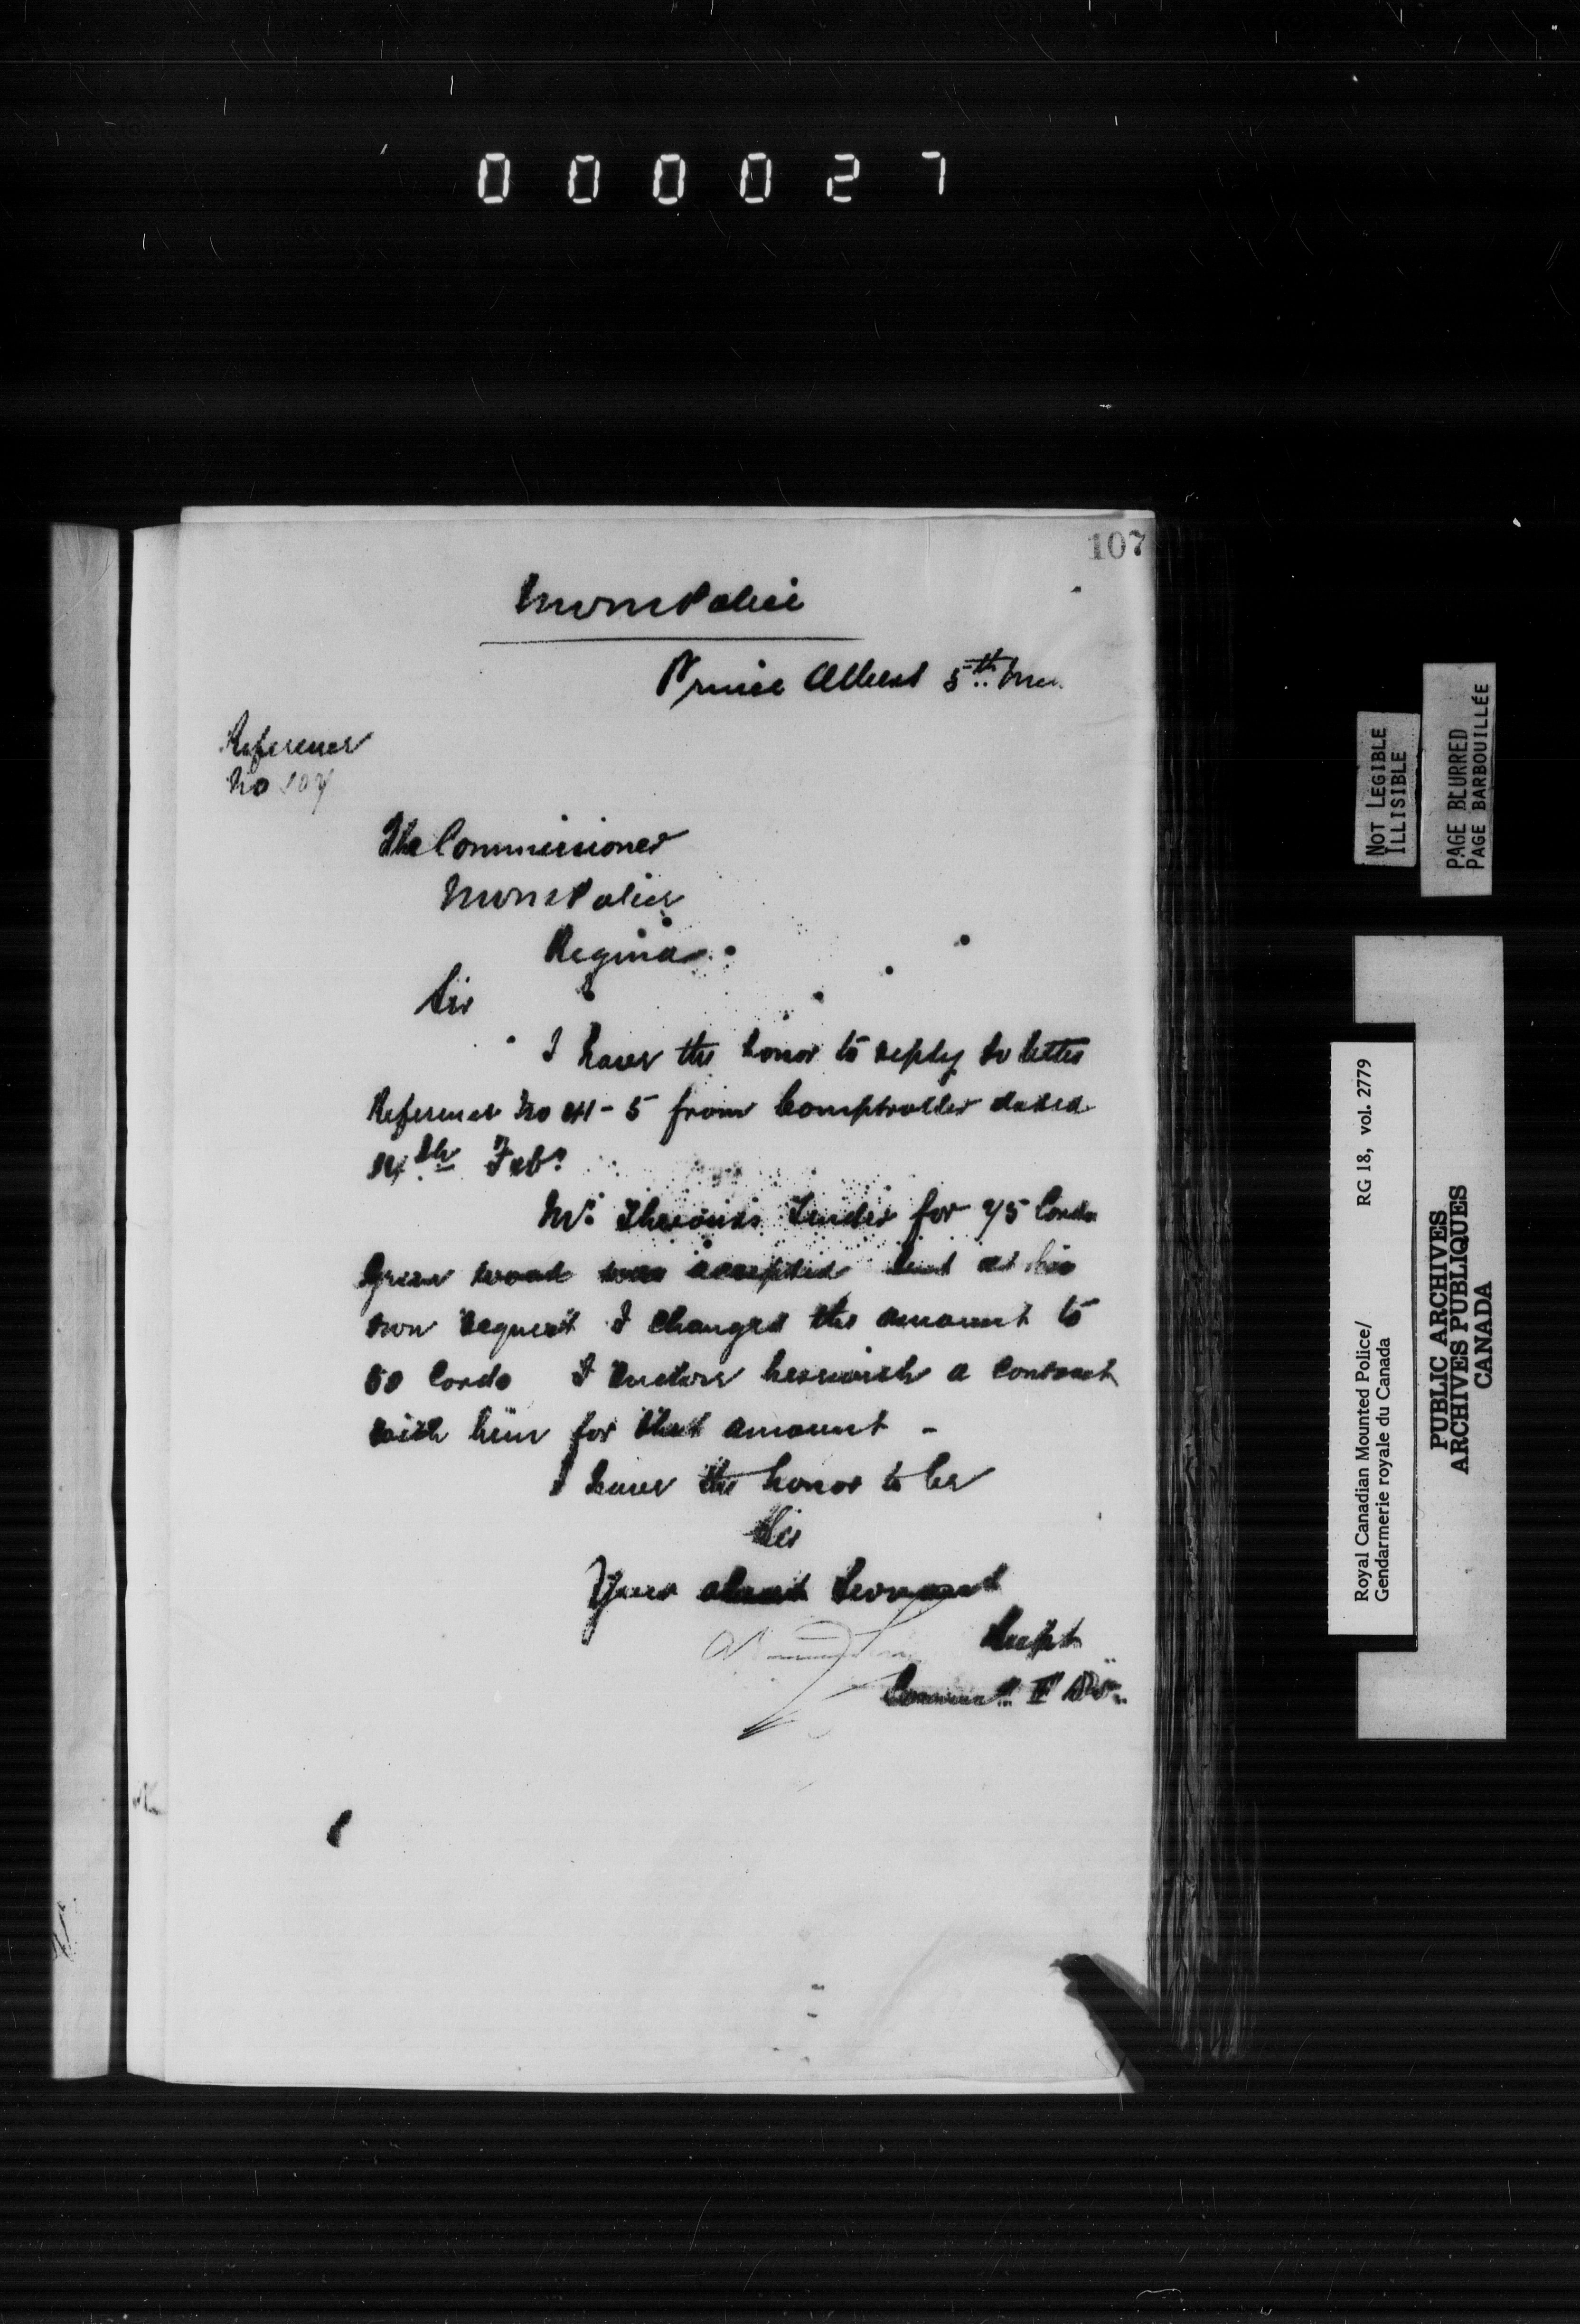 000027
107
NWM Police
Prince Albert 5th Mar
Reference
No 107
The Commissioner
NWM Police
Regina
Sir
I have the honor to reply to letter
Reference No 241-5 from Comptroller dated
th Feb.
Mr. Tender for 75 Cords
Green wood was accepted but at his
own request I changed the amount to
50 Cords I enclose herewith a contract
with him for that amount -
I have the honor to be
Sir
Your obedt Servant
Supt
Commdg "F" Div.
NOT LEGIBLE
ILLISIBLE
PAGE BLURRED
PAGE BARBOUILLÉE
Royal Canadian Mounted Police/ RG 18, vol. 2779
Gendarmerie royale du Canada
PUBLIC ARCHIVES
ARCHIVES PUBLIQUES
CANADA